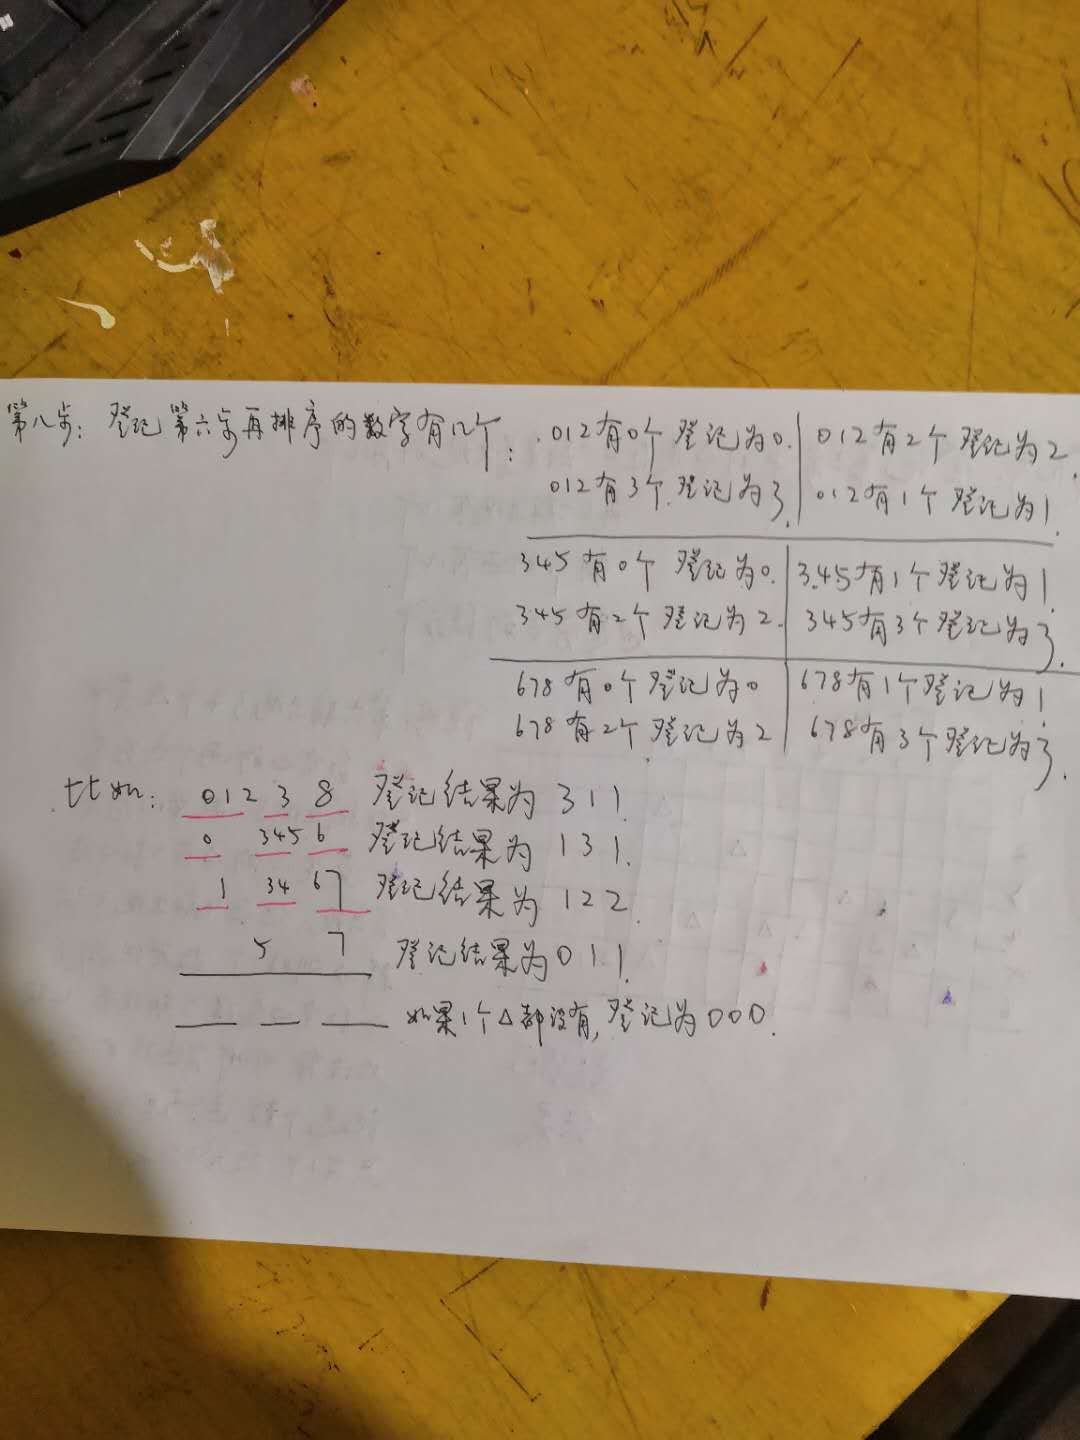 第八步: 登记第六步再排序的数字有几个:
012有0个登记为0. 012有2个登记为2.
012有3个登记为3. 012有1个登记为1.
345有0个登记为0. 345有1个登记为1.
345有2个登记为2. 345有3个登记为3.
678有0个登记为0 678有1个登记为1.
678有2个登记为2 678有3个登记为3.
比如: 012 3 8 登记结果为 311.
0 345 6 登记结果为 131.
1 34 67 登记结果为 122.
5 7 登记结果为011.
如果1个△都没有,登记为000.